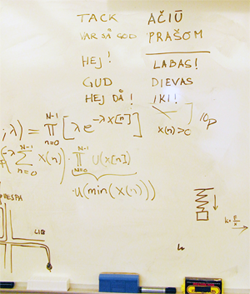 TACK AČIŪ
VAR SÅ GOD PRAŠOM
HEJ! LABAS!
GUD DIEVAS
HEJ DÅ! IKI!
;λ) = ∏ N-1 n=0 [λe^-λx[n]] x(n)>0
(-λ ∑ N-1 n=0 x(n)) · ∏ N-1 n=0 u(x[n])
u(min(x(n)))
LIB